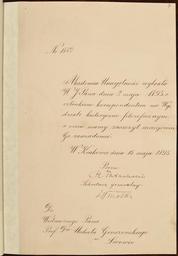 Akademia Umiejętności wybrała
W J Pana dnia 2 maja 1895 r.
członkiem korespondentem na Wy-
dziale historyczno filozoficznym,
o czem mamy zaszczyt uwiadomić
Go
W Krakowie dnia 16 maja 1895
Prezes
Sekretarz generalny
Do
Wielmożnego Pana
Prof. Dra Michała
Lwowie